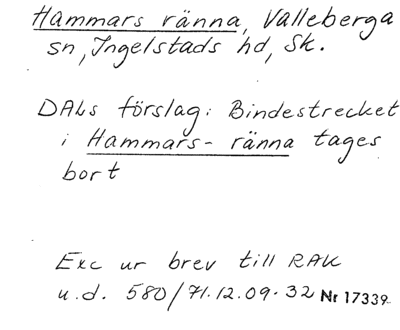 Hammars ränna, Valleberga
sn, Ingelstads hd, Sk.
DALs förslag: Bindestrecket
i Hammars- ränna tages
bort
Exc ur brev till RAK
u.d. 580/71.12.09-32 Nr 17339